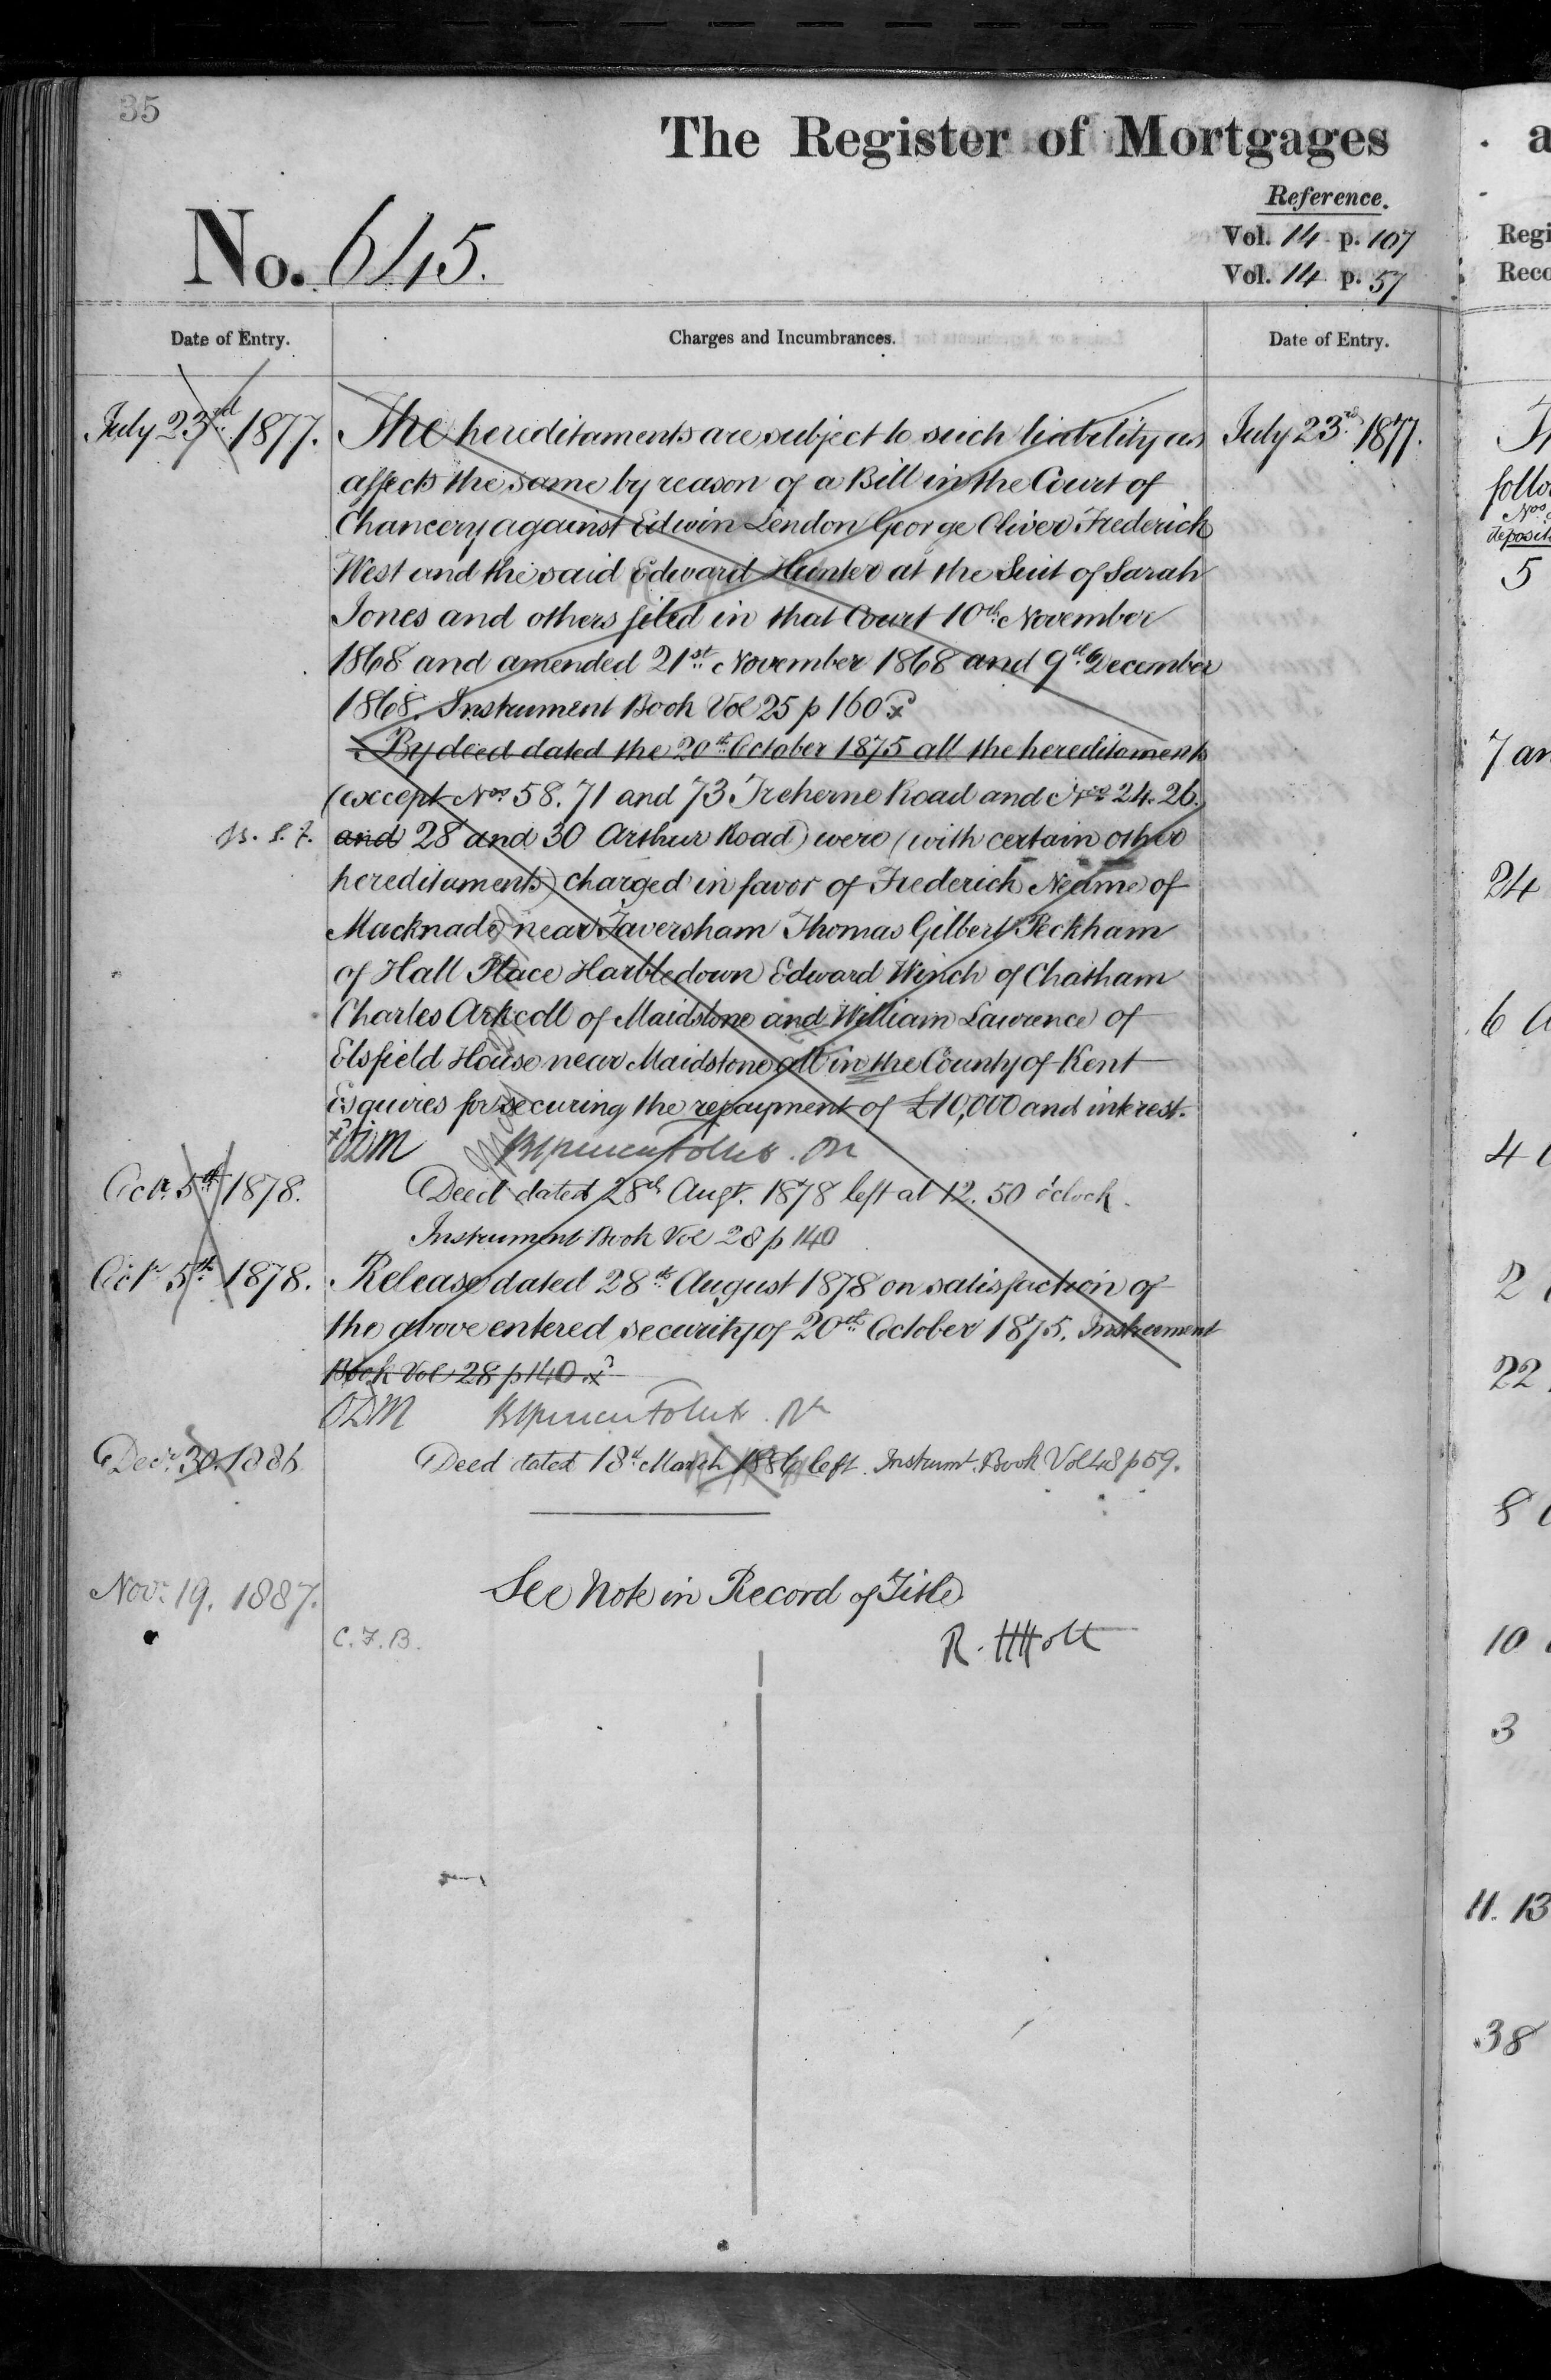 35
The Register of Mortgages
Reference.
No. 645.
Vol. 14 p. 107
Vol. 14 p. 57
Date of Entry.
Charges and Incumbrances.
Date of Entry.
July 23rd 1877.
The hereditaments are subject to such liability as
July 23rd 1877.
affects the same by reason of a Bill in the Court of
Chancery against Edwin Lendon George Oliver Frederick
West and the said Edward Hunter at the Suit of Sarah
Jones and others filed in that Court 10th November
1868 and amended 21st November 1868 and 9th December
1868. Instrument Book Vol 25 p 160 x
By deed dated the 20th October 1875 all the hereditaments
(except Nos 58. 71 and 73 Treherne Road and Nos 24. 26.
and 28 and 30 Arthur Road) were (with certain other
hereditaments) charged in favor of Frederick Neame of
Macknade near Faversham Thomas Gilbert Peckham
of Hall Place Harbledown Edward Winch of Chatham
Charles Arkcoll of Maidstone and William Lawrence of
Elsfield House near Maidstone all in the County of Kent
Esquires for securing the repayment of £10,000 and interest.
Octr 5th 1878.
Deed dated 28th Augt. 1878 left at 12. 50 o'clock.
Instrument Book Vol 28 p 140
Octr 5th 1878.
Release dated 28th August 1878 on satisfaction of
the above entered security of 20th October 1875. Instrument
Book Vol 28 p 140 x
Decr 30. 1886
Deed dated 18th March 1886 left. Instrumt. Book Vol 48 p 59.
Novr 19. 1887.
See Note in Record of Title
C. F. B.
R. H Holt
a
Regi
Reco
follo
Nos
deposit
5
7 an
24
6
4
2
22
8
10
3
11. 13
38